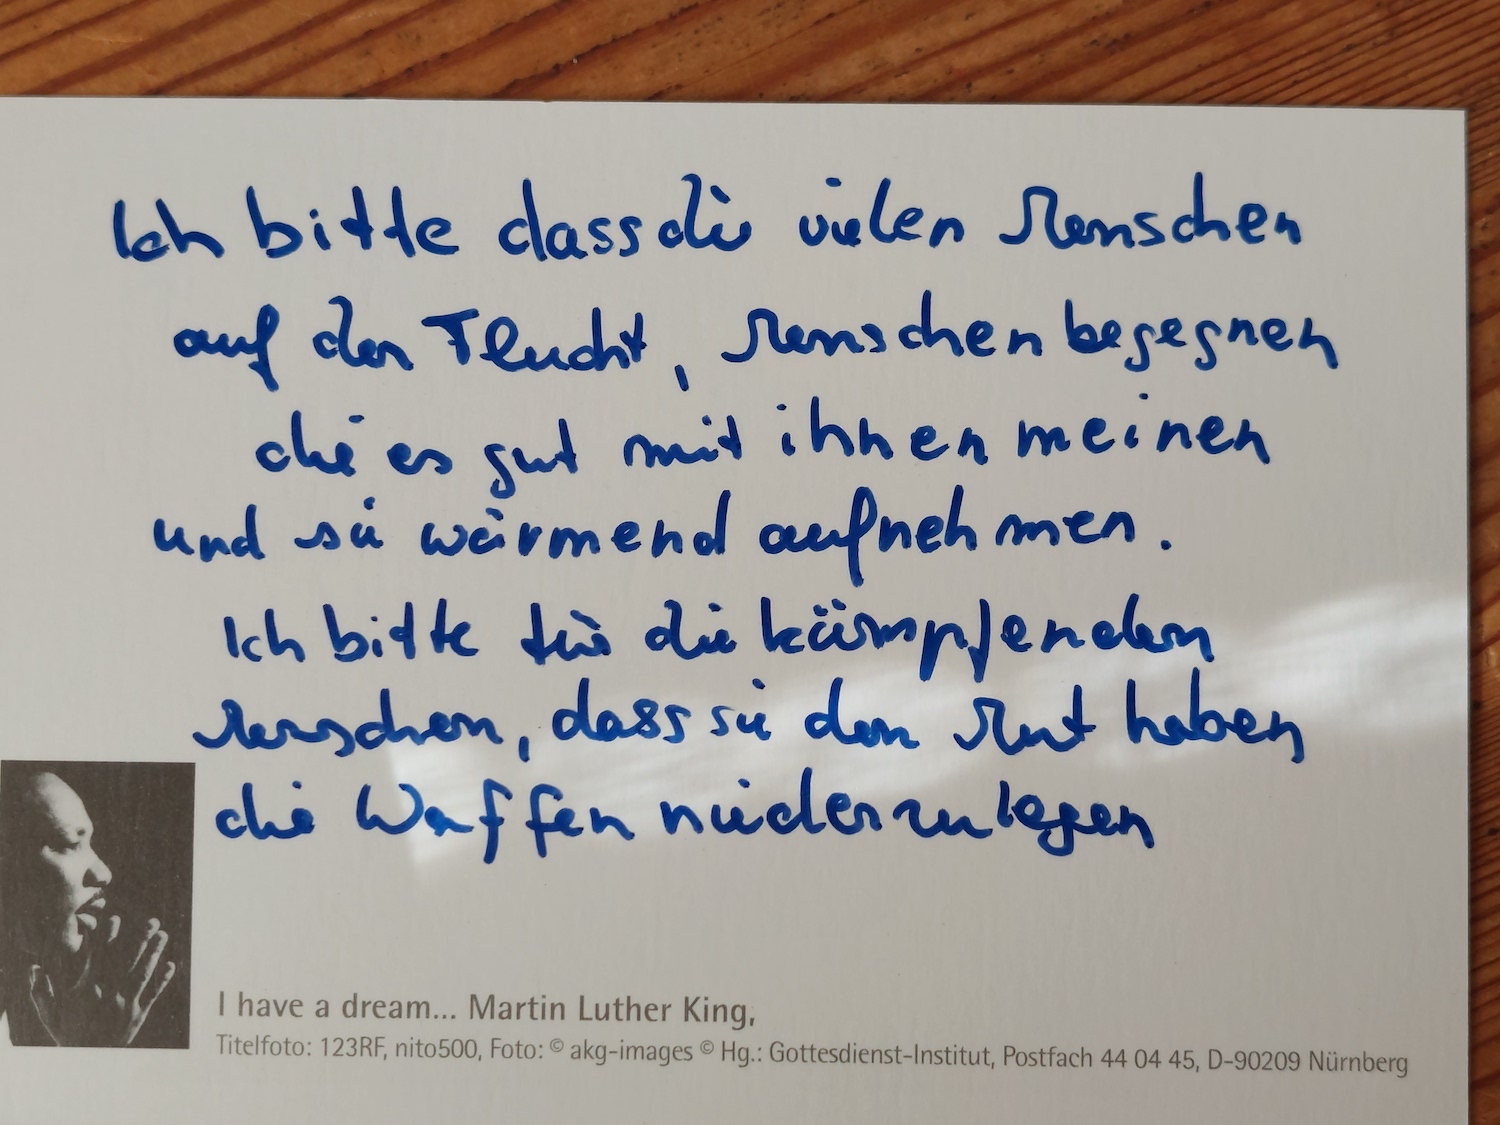 Ich bitte dass die vielen Menschen
auf der Flucht, Menschen begegnen
die es gut mit ihnen meinen
und sie wärmend aufnehmen.
Ich bitte für die kämpfenden
Menschen, dass sie den Mut haben
die Waffen niederzulegen
I have a dream... Martin Luther King,
Titelfoto: 123RF, nito500, Foto: © akg-images © Hg.: Gottesdienst-Institut, Postfach 44 04 45, D-90209 Nürnberg